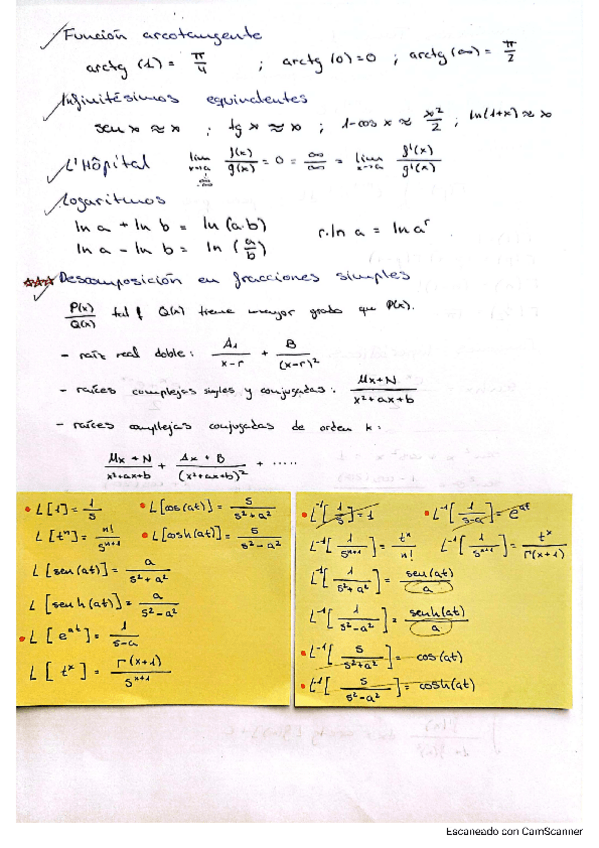 Función arcotangente
arctg (1) = π/4 ; arctg (0) = 0 ; arctg (∞) = π/2
Infinitésimos equivalentes
sen x ≈ x ; tg x ≈ x ; 1-cos x ≈ x²/2 ; ln(1+x) ≈ x
L'Hôpital lim x→a f(x)/g(x) = 0 = ∞/∞ = lim x→a f'(x)/g'(x)
Logaritmos
ln a + ln b = ln (a·b) r·ln a = ln aʳ
ln a - ln b = ln (a/b)
Descomposición en fracciones simples
P(x)/Q(x) tal q Q(x) tiene mayor grado que P(x).
- raíz real doble: A₁/(x-r) + B/(x-r)²
- raíces complejas simples y conjugadas: (Mx+N)/(x²+ax+b)
- raíces complejas conjugadas de orden k:
(Mx+N)/(x²+ax+b) + (Ax+B)/(x²+ax+b)² + .....
L[1] = 1/s L[cos(at)] = s/(s²+a²)
L[tⁿ] = n!/sⁿ⁺¹ L[cosh(at)] = s/(s²-a²)
L[sen(at)] = a/(s²+a²)
L[senh(at)] = a/(s²-a²)
L[eᵃᵗ] = 1/(s-a)
L[tˣ] = Γ(x+1)/sˣ⁺¹
L⁻¹[1/s] = 1 L⁻¹[1/(s-a)] = eᵃᵗ
L⁻¹[1/sⁿ⁺¹] = tⁿ/n! L⁻¹[1/sˣ⁺¹] = tˣ/Γ(x+1)
L⁻¹[1/(s²+a²)] = sen(at)/a
L⁻¹[1/(s²-a²)] = senh(at)/a
L⁻¹[s/(s²+a²)] = cos(at)
L⁻¹[s/(s²-a²)] = cosh(at)
Escaneado con CamScanner